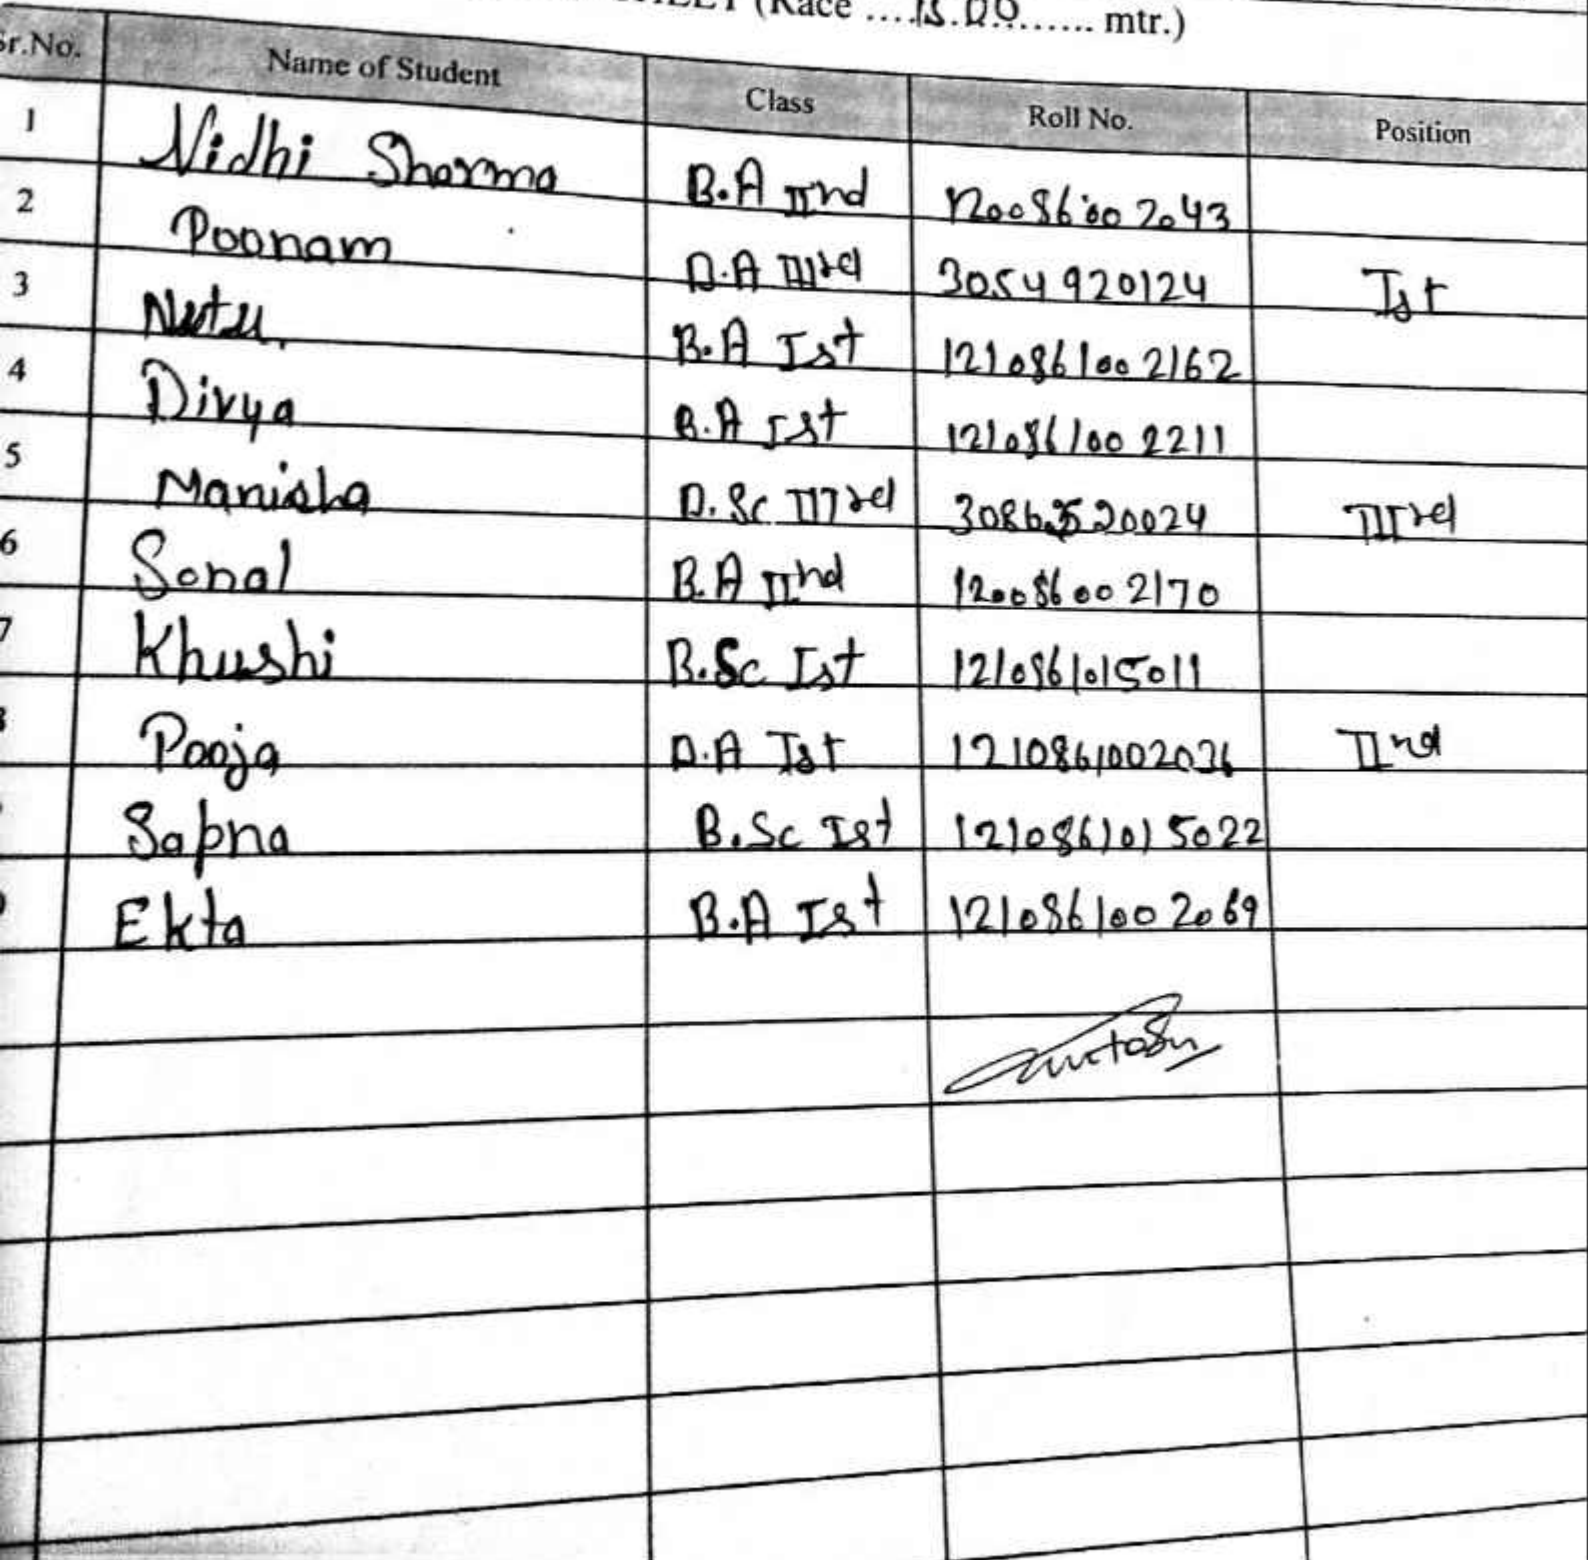 (Race ....1500....... mtr.)
Sr.No. Name of Student Class Roll No. Position
1 Nidhi Sharma B.A IInd 120086002043
2 Poonam B.A IIIrd 3054920124 Ist
3 Neetu B.A Ist 1210861002162
4 Divya B.A Ist 1210861002211
5 Manisha B.Sc IIIrd IIIrd
6 Sonal B.A IInd 120086002170
7 Khushi B.Sc Ist 1210861015011
Pooja B.A Ist 1210861002036 IInd
Sapna B.Sc Ist 1210861015022
Ekta B.A Ist 1210861002069